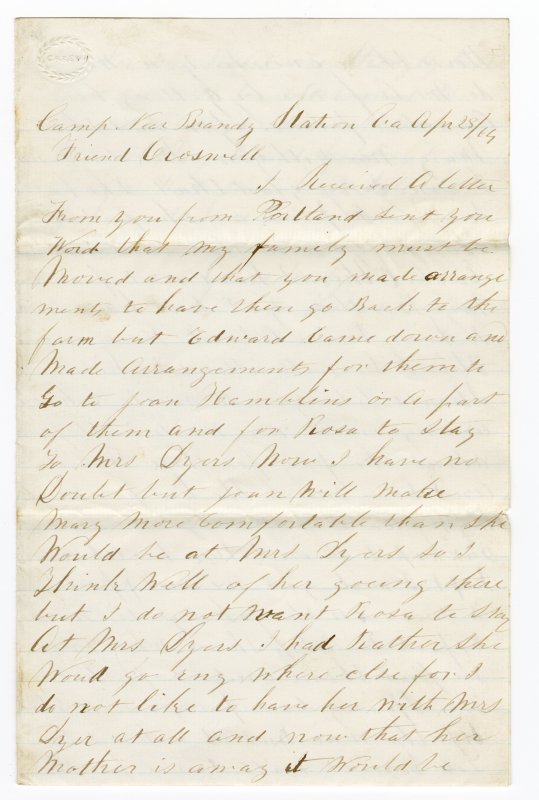 CAREW
Camp Near Brandy Station Va Apr 28/64
Friend Croswell
I Received A letter
From you from Portland sent you
Word that my family must be
Moved and that you made arrange
ments to have them go Back to the
farm but Edward Came down and
Made Arrangements for them to
Go to Joan Hamblins or A part
of them and for Rosa to stay
To Mrs Dyers Now I have no
Doubt but Joan Will Make
Mary More Comfortable than she
Would be at Mrs Dyers so I
Think Well of her going there
but I do not want Rosa to stay
At Mrs Dyers I had Rather she
Woud go eny where else for I
do not like to have her with Mrs
Dyer at all and now that her
Mother is away it Would be